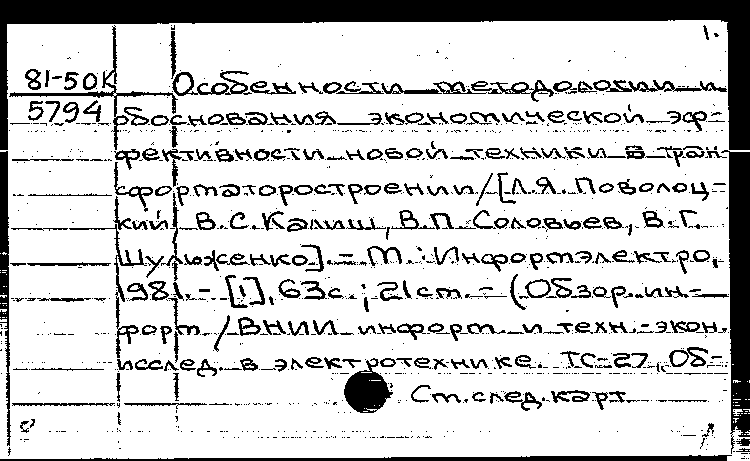 1.
81-50К Особенности методологии и
5794 обоснования экономической эф-
фективности новой техники в тран-
сформаторостроении/[Л.Я. Поволоц-
кий В.С.Калиш, В.П. Соловьев, В.Г.
Шульженко]. = М.: Информэлектро,
1981. - [1], 63с.; 21 cm. - (Обзор. ин-
форм. / ВНИИ информ. и техн.-экон.
исслед. в электротехнике. ТС-27, Об-
Ст. след. карт.